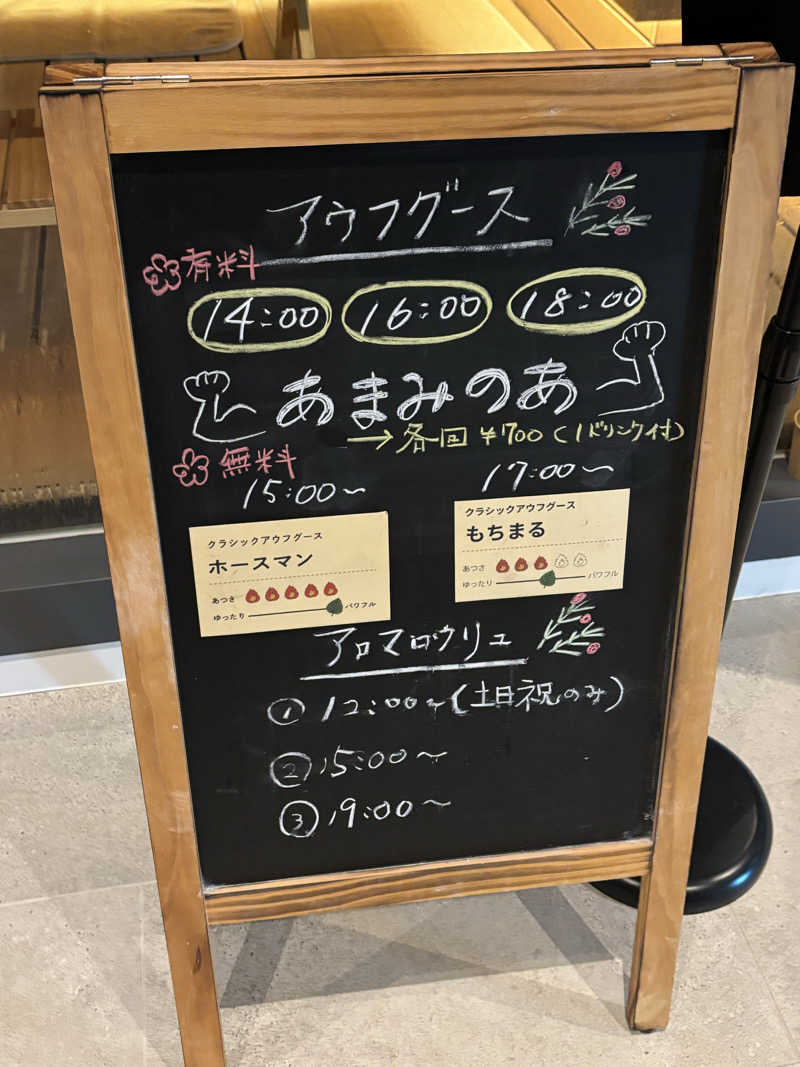 アウフグース
有料
14:00 16:00 18:00
あまみのあ
→各回 ¥700(1ドリンク付)
無料
15:00～ 17:00～
クラシックアウフグース
ホースマン
あつさ
ゆったり パワフル
クラシックアウフグース
もちまる
あつさ
ゆったり パワフル
アロマロウリュ
① 12:00～(土日祝のみ)
② 15:00～
③ 19:00～